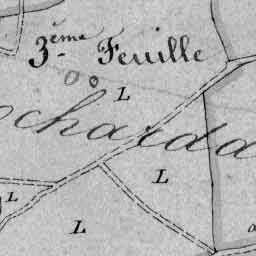 3.ème Feuille
L
charda
L
L
L